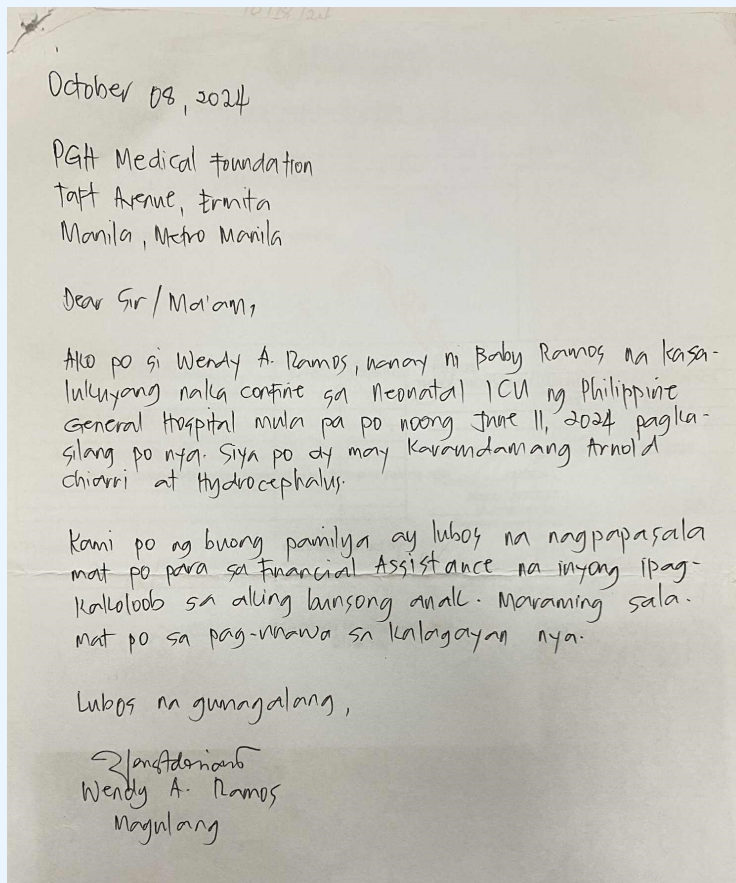 October 08, 2024
PGH Medical Foundation
Taft Avenue, Ermita
Manila, Metro Manila
Dear Sir / Ma'am,
Ako po si Wendy A. Ramos, nanay ni Baby Ramos na kasa-
lukuyang naka confine sa Neonatal ICU ng Philippine
General Hospital mula pa po noong June 11, 2024 pagka-
silang po nya. Siya po ay may Karamdamang Arnold
chiarri at Hydrocephalus.
Kami po ng buong pamilya ay lubos na nagpapasala
mat po para sa Financial Assistance na inyong ipag-
kakoloob sa aking bunsong anak. Maraming sala-
mat po sa pag-unawa sa kalagayan nya.
Lubos na gumagalang,
Wendy A. Ramos
Magulang